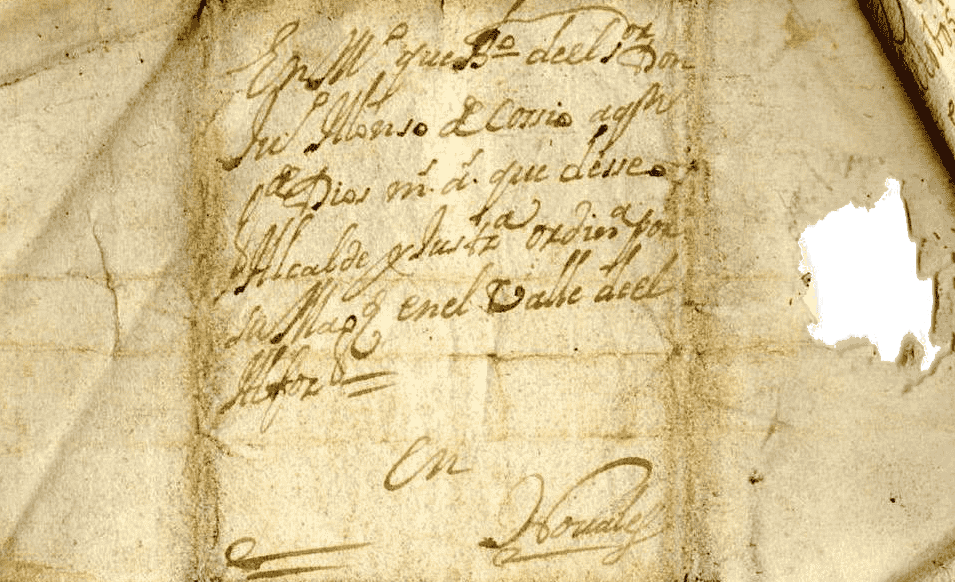 En M.º que B.º deel S.or Don
Ju.º Alonso de Cossio a q.n
g.de Dios m. a. que desseo
Alcalde y Justz.a ordin.a por
su Mag.d en el Valle deel
Alfoz
En
Nouales